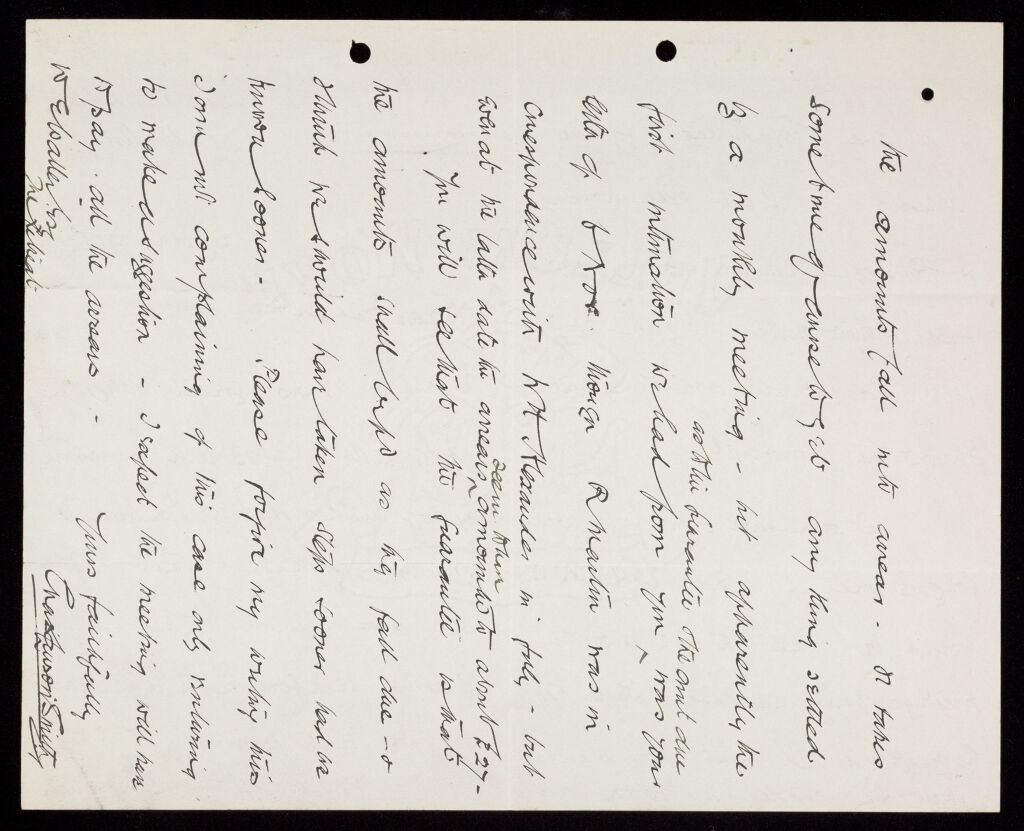 the amounts fall into arrear - It takes
some time of course to get any thing settled
by a monthly meeting - but apparently the
as to this guarantee the amt due
first intimation we had from you was your
letter of Nov. though Mantin was in
correspondence with Mr Alexander in July - but
seem to have
even at the latter date the arrears amounted to about £27 -
You will see that the guarantee is that
the amounts shall be pd as they fall due - &
I think we should have taken steps sooner had we
known sooner - Please forgive my writing this
I am not complaining of this case only venturing
to make a suggestion - I expect the meeting will have
to pay all the arrears -
Yours faithfully
W E Waller Esq
The Retreat